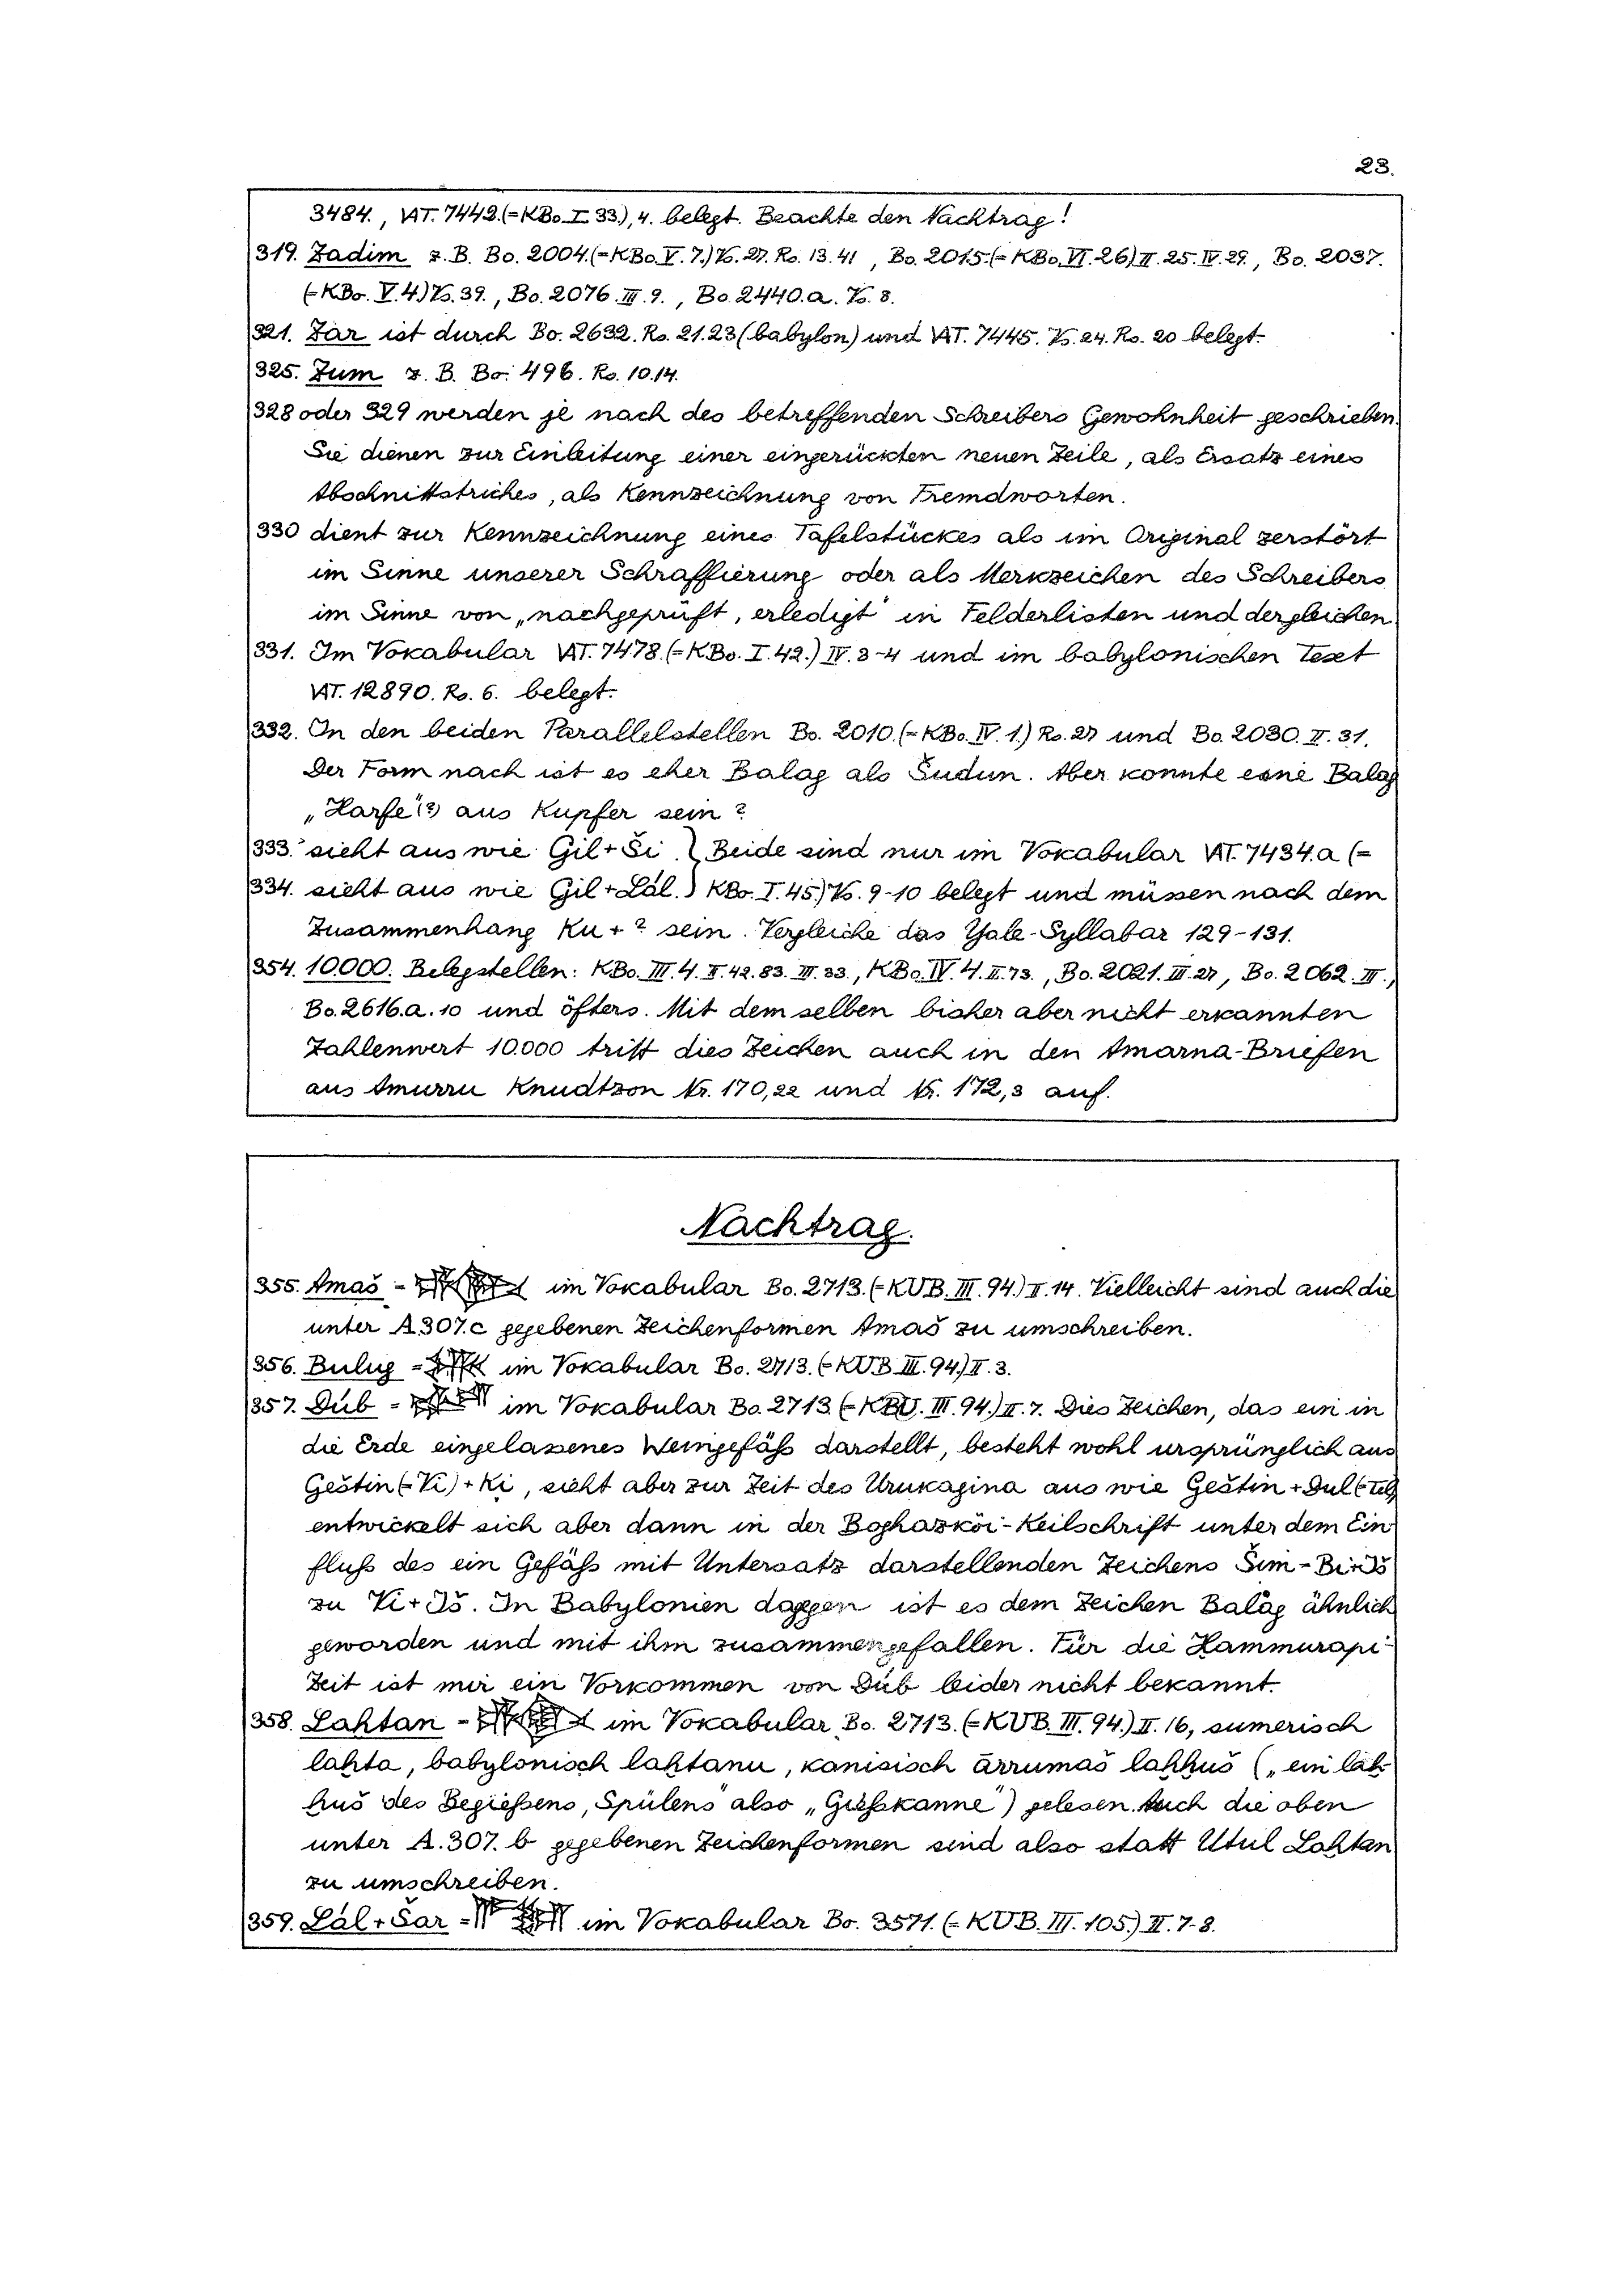 23.
3484., VAT. 7449.(=KBo. I. 33.), 4. belegt. Beachte den Nachtrag!
319. Zadim z. B. Bo. 2004.(=KBo. V. 7.) Vs. 27. Rs. 13. 41, Bo. 2015.(=KBo. VI. 26) II. 25. IV. 29., Bo. 2037.
(=KBo. V. 4.) Vs. 39., Bo. 2076. III. 9., Bo. 2440.a. Vs. 8.
321. Zar ist durch Bo. 2632. Rs. 21.23 (babylon) und VAT. 7445. Vs. 24. Rs. 20 belegt.
325. Zum z. B. Bo. 496. Rs. 10.14.
328 oder 329 werden je nach des betreffenden Schreibers Gewohnheit geschrieben.
Sie dienen zur Einleitung einer eingerückten neuen Zeile, als Ersatz eines
Abschnittstriches, als Kennzeichnung von Fremdworten.
330 dient zur Kennzeichnung eines Tafelstückes als im Original zerstört
im Sinne unserer Schraffierung oder als Merkzeichen des Schreibers
im Sinne von „nachgeprüft, erledigt“ in Felderlisten und dergleichen.
331. Im Vokabular VAT. 7478.(=KBo. I. 42.) IV. 3-4 und im babylonischen Text
VAT. 12890. Rs. 6. belegt.
332. In den beiden Parallelstellen Bo. 2010.(=KBo. IV. 1.) Rs. 27 und Bo. 2030. II. 31.
Der Form nach ist es eher Balag als Šudun. Aber konnte eine Balag
„Harfe“(?) aus Kupfer sein?
333. sieht aus wie Gil+Ši. } Beide sind nur im Vokabular VAT. 7434.a (=
334. sieht aus wie Gil+Lál. } KBo. I. 45.) Vs. 9-10 belegt und müssen nach dem
Zusammenhang Ku+? sein. Vergleiche das Yale-Syllabar 129-131.
354. 10.000. Belegstellen: KBo. III. 4. II. 42. 83. III. 33., KBo. IV. 4. II. 73., Bo. 2021. III. 27, Bo. 2062. III.,
Bo. 2616.a. 10 und öfters. Mit demselben bisher aber nicht erkannten
Zahlenwert 10.000 tritt dies Zeichen auch in den Amarna-Briefen
aus Amurru Knudtzon Nr. 170,22 und Nr. 172,3 auf.
Nachtrag.
355. Amaš = im Vokabular Bo. 2713. (=KUB. III. 94.) II. 14. Vielleicht sind auch die
unter A 307.c gegebenen Zeichenformen Amaš zu umschreiben.
356. Bulug = im Vokabular Bo. 2713. (=KUB. III. 94.) II. 3.
357. Dúb = im Vokabular Bo. 2713 (=KBU. III. 94.) II. 7. Dies Zeichen, das ein in
die Erde eingelassenes Weingefäß darstellt, besteht wohl ursprünglich aus
Geštin (=Vi) + Ki, sieht aber zur Zeit des Urukagina aus wie Geštin + Dul (=Til)
entwickelt sich aber dann in der Boghazköi-Keilschrift unter dem Ein-
fluß des ein Gefäß mit Untersatz darstellenden Zeichens Šim = Bi+Iš
zu Vi+Iš. In Babylonien dagegen ist es dem Zeichen Balag ähnlich
geworden und mit ihm zusammengefallen. Für die Hammurapi-
Zeit ist mir ein Vorkommen von Dúb leider nicht bekannt.
358. Laḫtan = im Vokabular Bo. 2713. (=KUB. III. 94.) II. 16, sumerisch
laḫta, babylonisch laḫtanu, kanisisch arrumaš laḫḫuš („ein laḫ-
ḫuš des Begießens, Spülens“ also „Gießkanne“) gelesen. Auch die oben
unter A. 307. b gegebenen Zeichenformen sind also statt Utul Laḫtan
zu umschreiben.
359. Lál+Šar = im Vokabular Bo. 3571. (=KUB. III. 105.) II. 7-8.